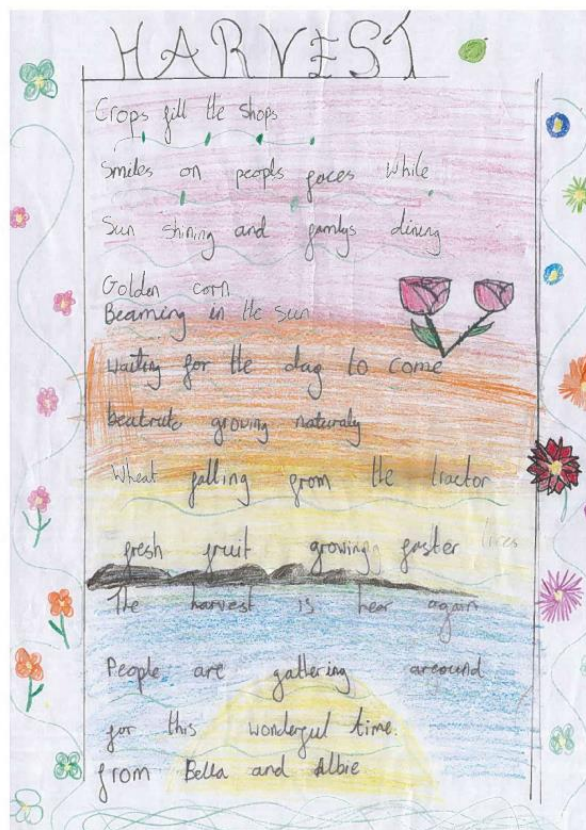 HARVEST
Crops fill the shops
Smiles on peopls faces while
Sun shining and familys dining
Golden corn
Beaming in the sun
Waiting for the day to come
beatruts growing naturaly
Wheat falling from the tractor
fresh fruit growing faster
The harvest is hear again
People are gathering areound
for this wonderful time.
from Bella and Albie